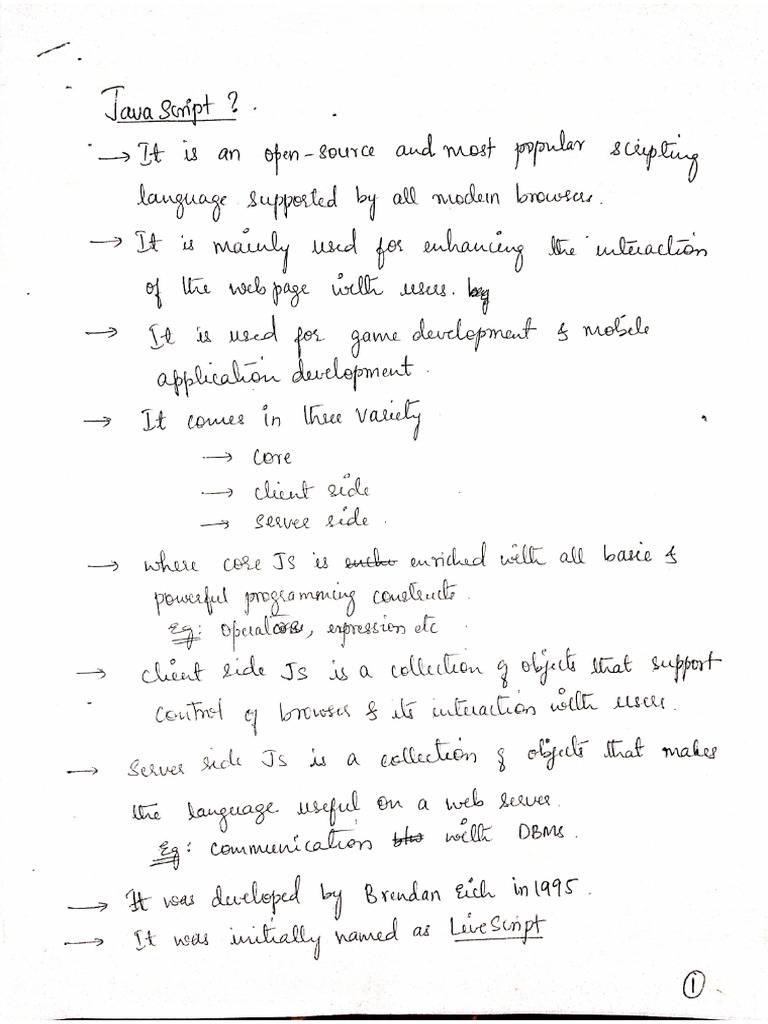 JavaScript ? .
→ It is an open-source and most popular scripting
language supported by all modern browsers.
→ It is mainly used for enhancing the interaction
of the webpage with users.
→ It is used for game development & mobile
application development.
→ It comes in three variety
→ core
→ client side
→ server side.
→ where core JS is enriched with all basic &
powerful programming constructs.
Eg: operators, expression etc
→ client side JS is a collection of objects that support
control of browser & its interaction with user.
→ Server side JS is a collection of objects that makes
the language useful on a web server.
Eg: communication with DBMS.
→ It was developed by Brendan Eich in 1995.
→ It was initially named as LiveScript
1